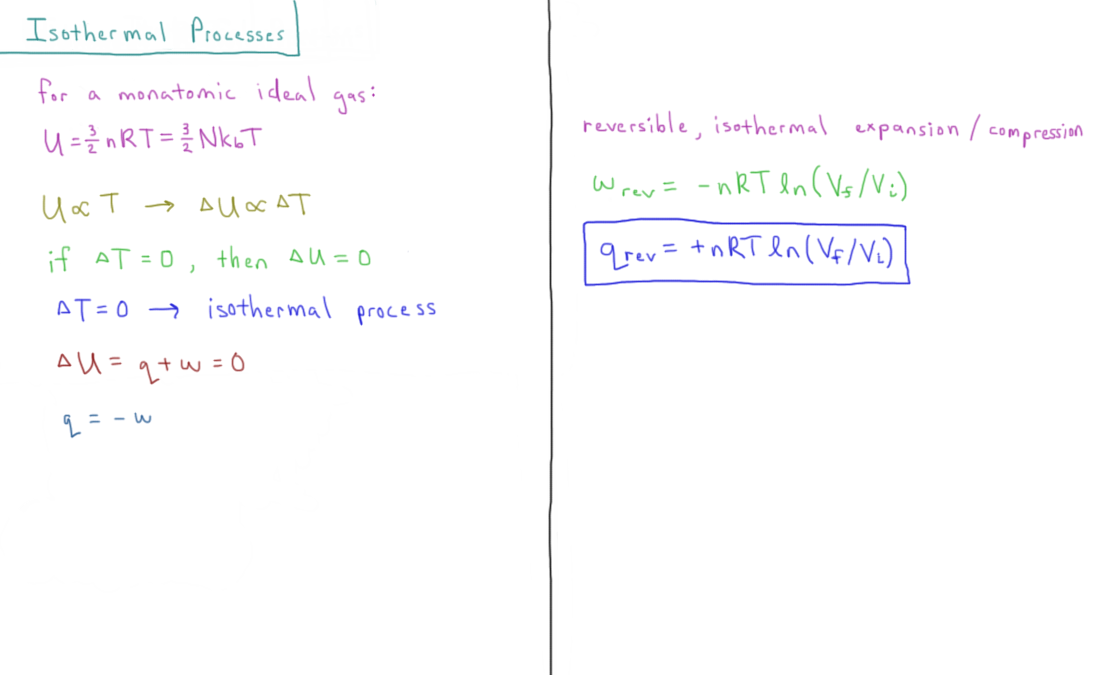 Isothermal Processes
for a monatomic ideal gas:
U = 3/2 nRT = 3/2 Nk_bT
U ∝ T → ΔU ∝ ΔT
if ΔT = 0, then ΔU = 0
ΔT = 0 → isothermal process
ΔU = q + w = 0
q = -w
reversible, isothermal expansion / compression
w_rev = -nRT ln(V_f/V_i)
q_rev = +nRT ln(V_f/V_i)